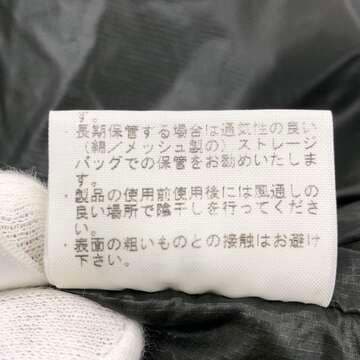 す。
・長期保管する場合は通気性の良い
（綿／メッシュ製の）ストレージ
バッグでの保管をお勧めいたしま
す。
・製品の使用前使用後には風通しの
良い場所で陰干しを行ってくださ
い。
・表面の粗いものとの接触はお避け
下さい。